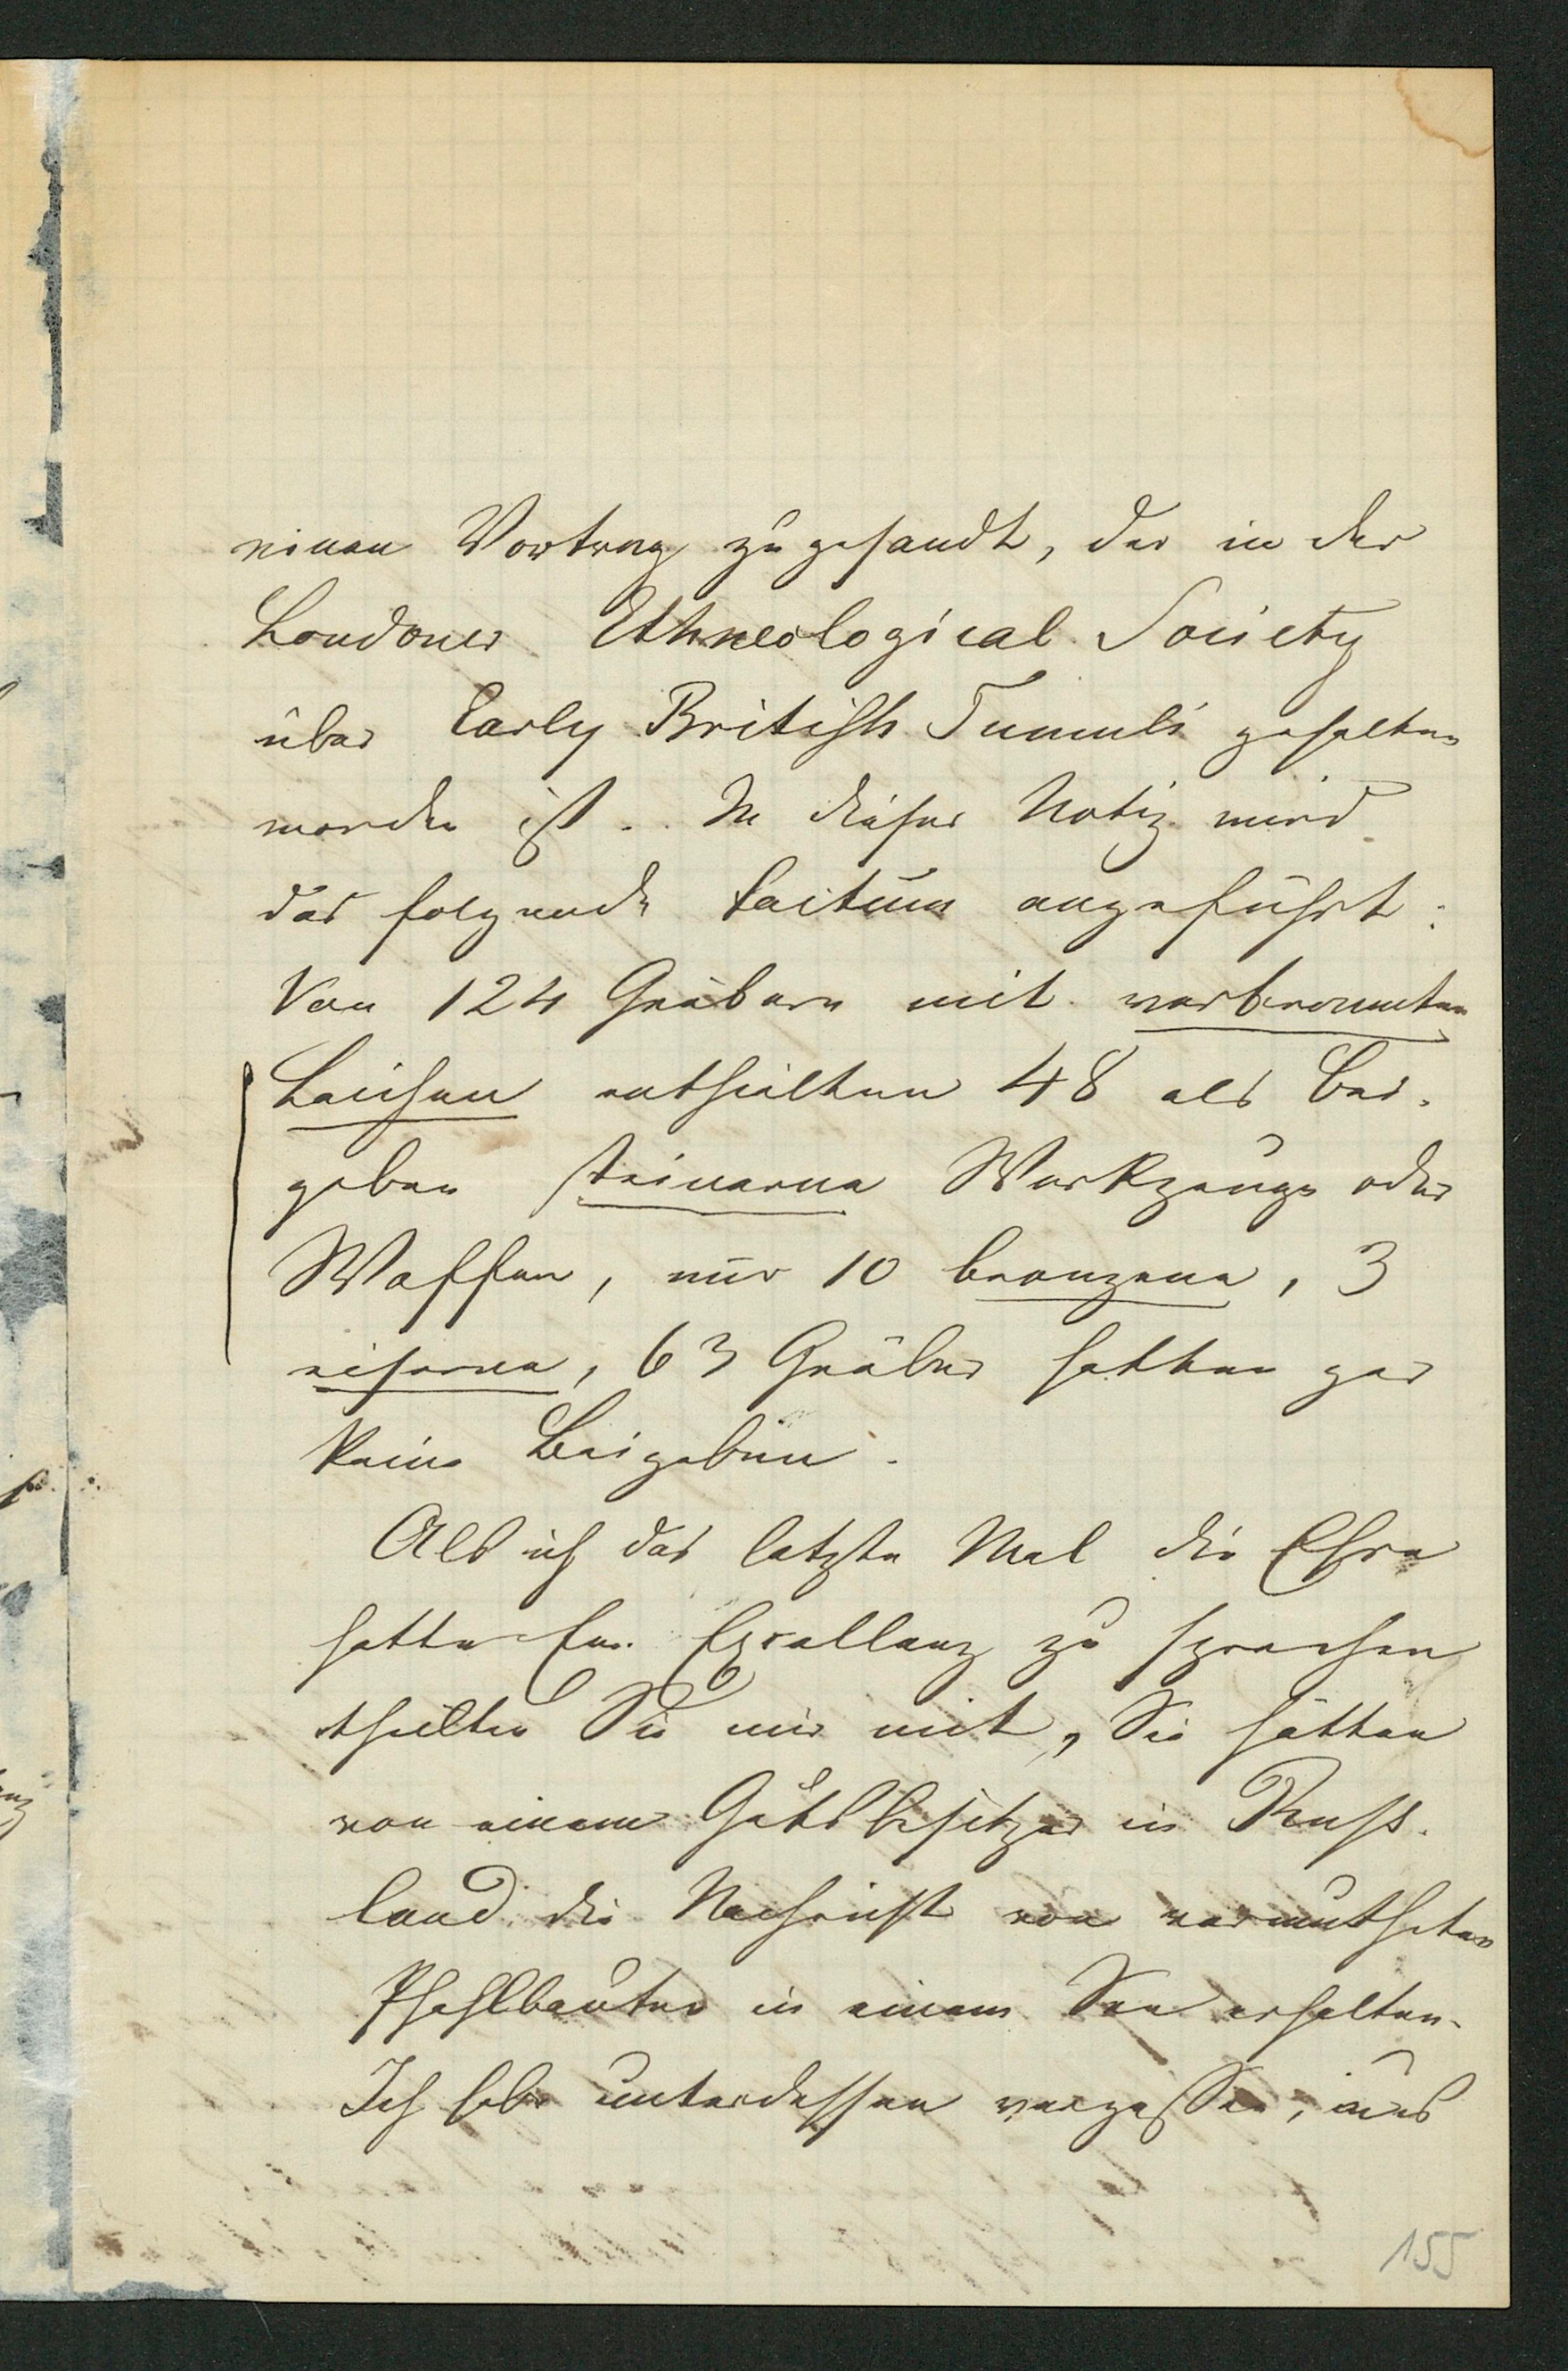 einen Vortrag zugesandt, der in der
Londoner Ethneological Society
über Early British Tumuli gehalten
worden ist. In dieser Notiz wird
das folgende factum angeführt:
Von 124 Gräbern mit verbrannten
Leichen enthielten 48 als Bei-
gaben steinerne Werkzeuge oder
Waffen, nur 10 bronzene, 3
eiserne, 63 Gräber hatten gar
keine Beigaben.
Als ich das letzte Mal die Ehre
hatte Ew. Excellenz zu sprechen
theilten Sie mir mit, Sie hätten
von einem Gutsbesitzer in Russ-
land die Nachricht von vermutheten
Pfahlbauten in einem See erhalten.
Ich habe unterdessen vergessen, aus
155